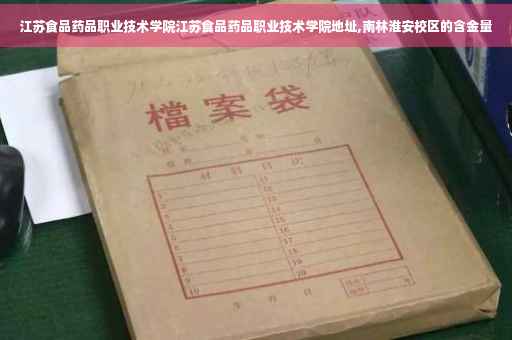 江苏食品药品职业技术学院江苏食品药品职业技术学院地址,南林淮安校区的含金量
檔案袋
材料目次
1 11
2 12
3 13
4 14
5 15
6 16
7 17
8 18
9 19
10 20
年 月 日